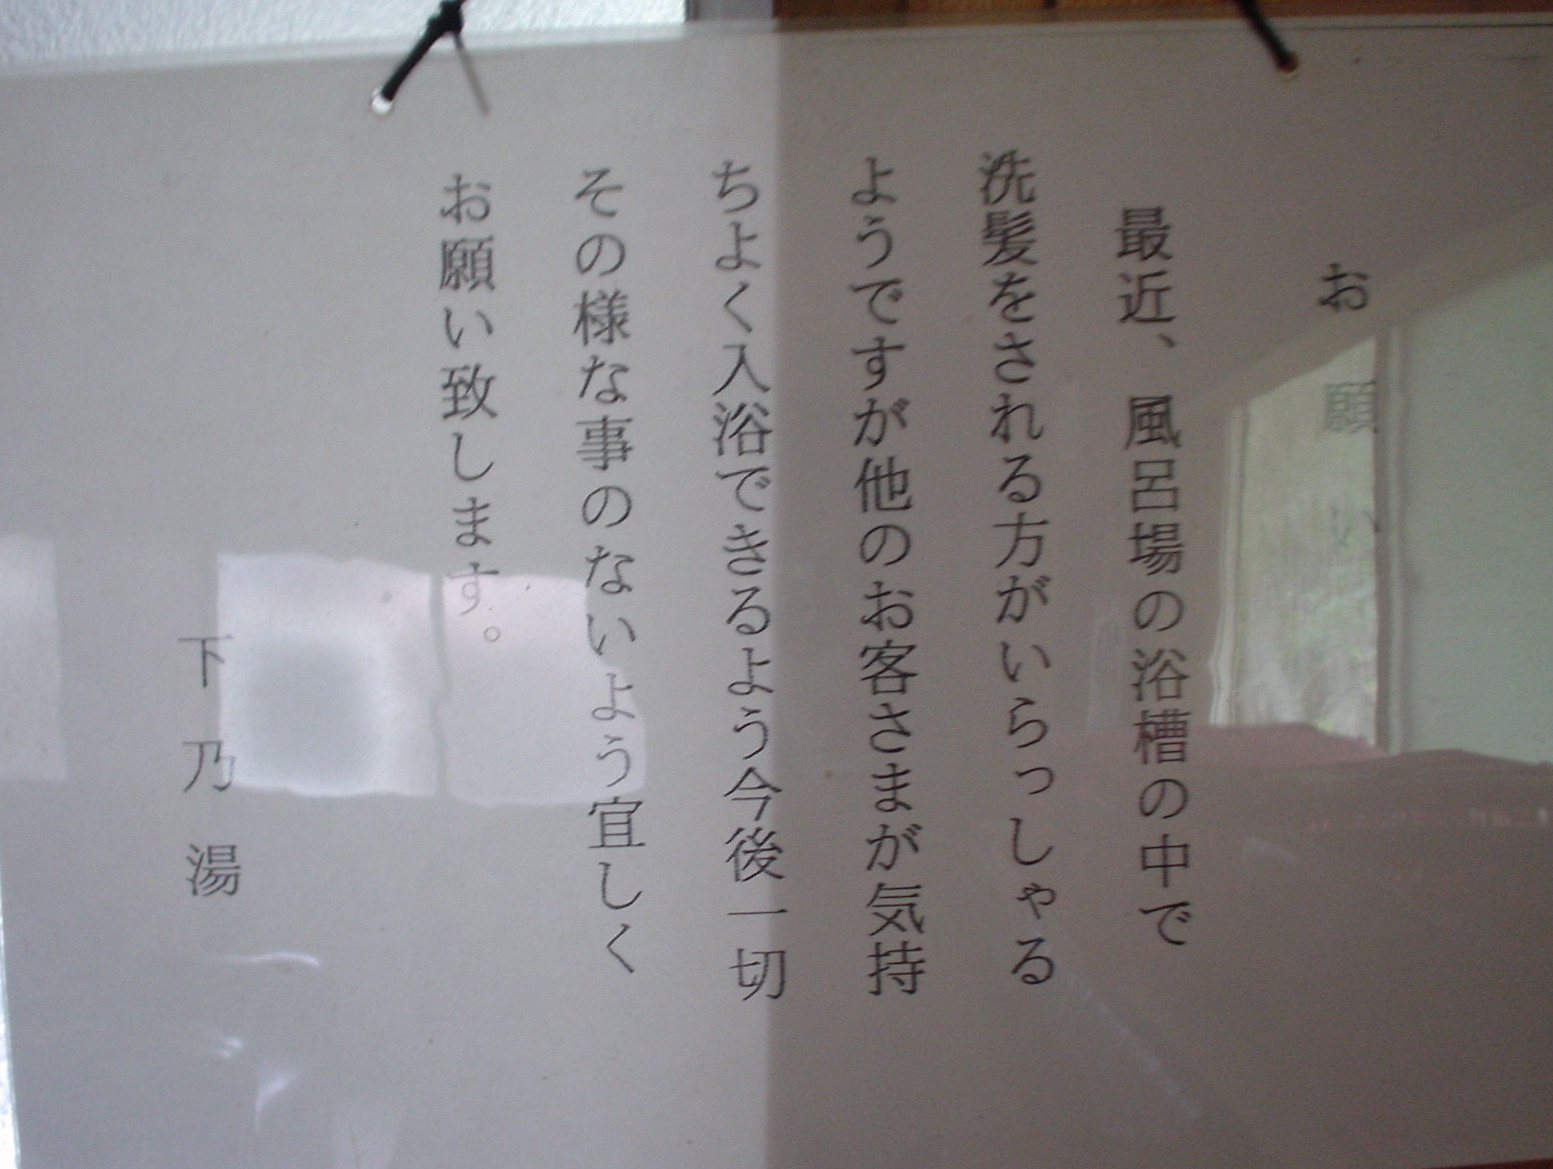 お願い
最近、風呂場の浴槽の中で
洗髪をされる方がいらっしゃる
ようですが他のお客さまが気持
ちよく入浴できるよう今後一切
その様な事のないよう宜しく
お願い致します。
下乃湯